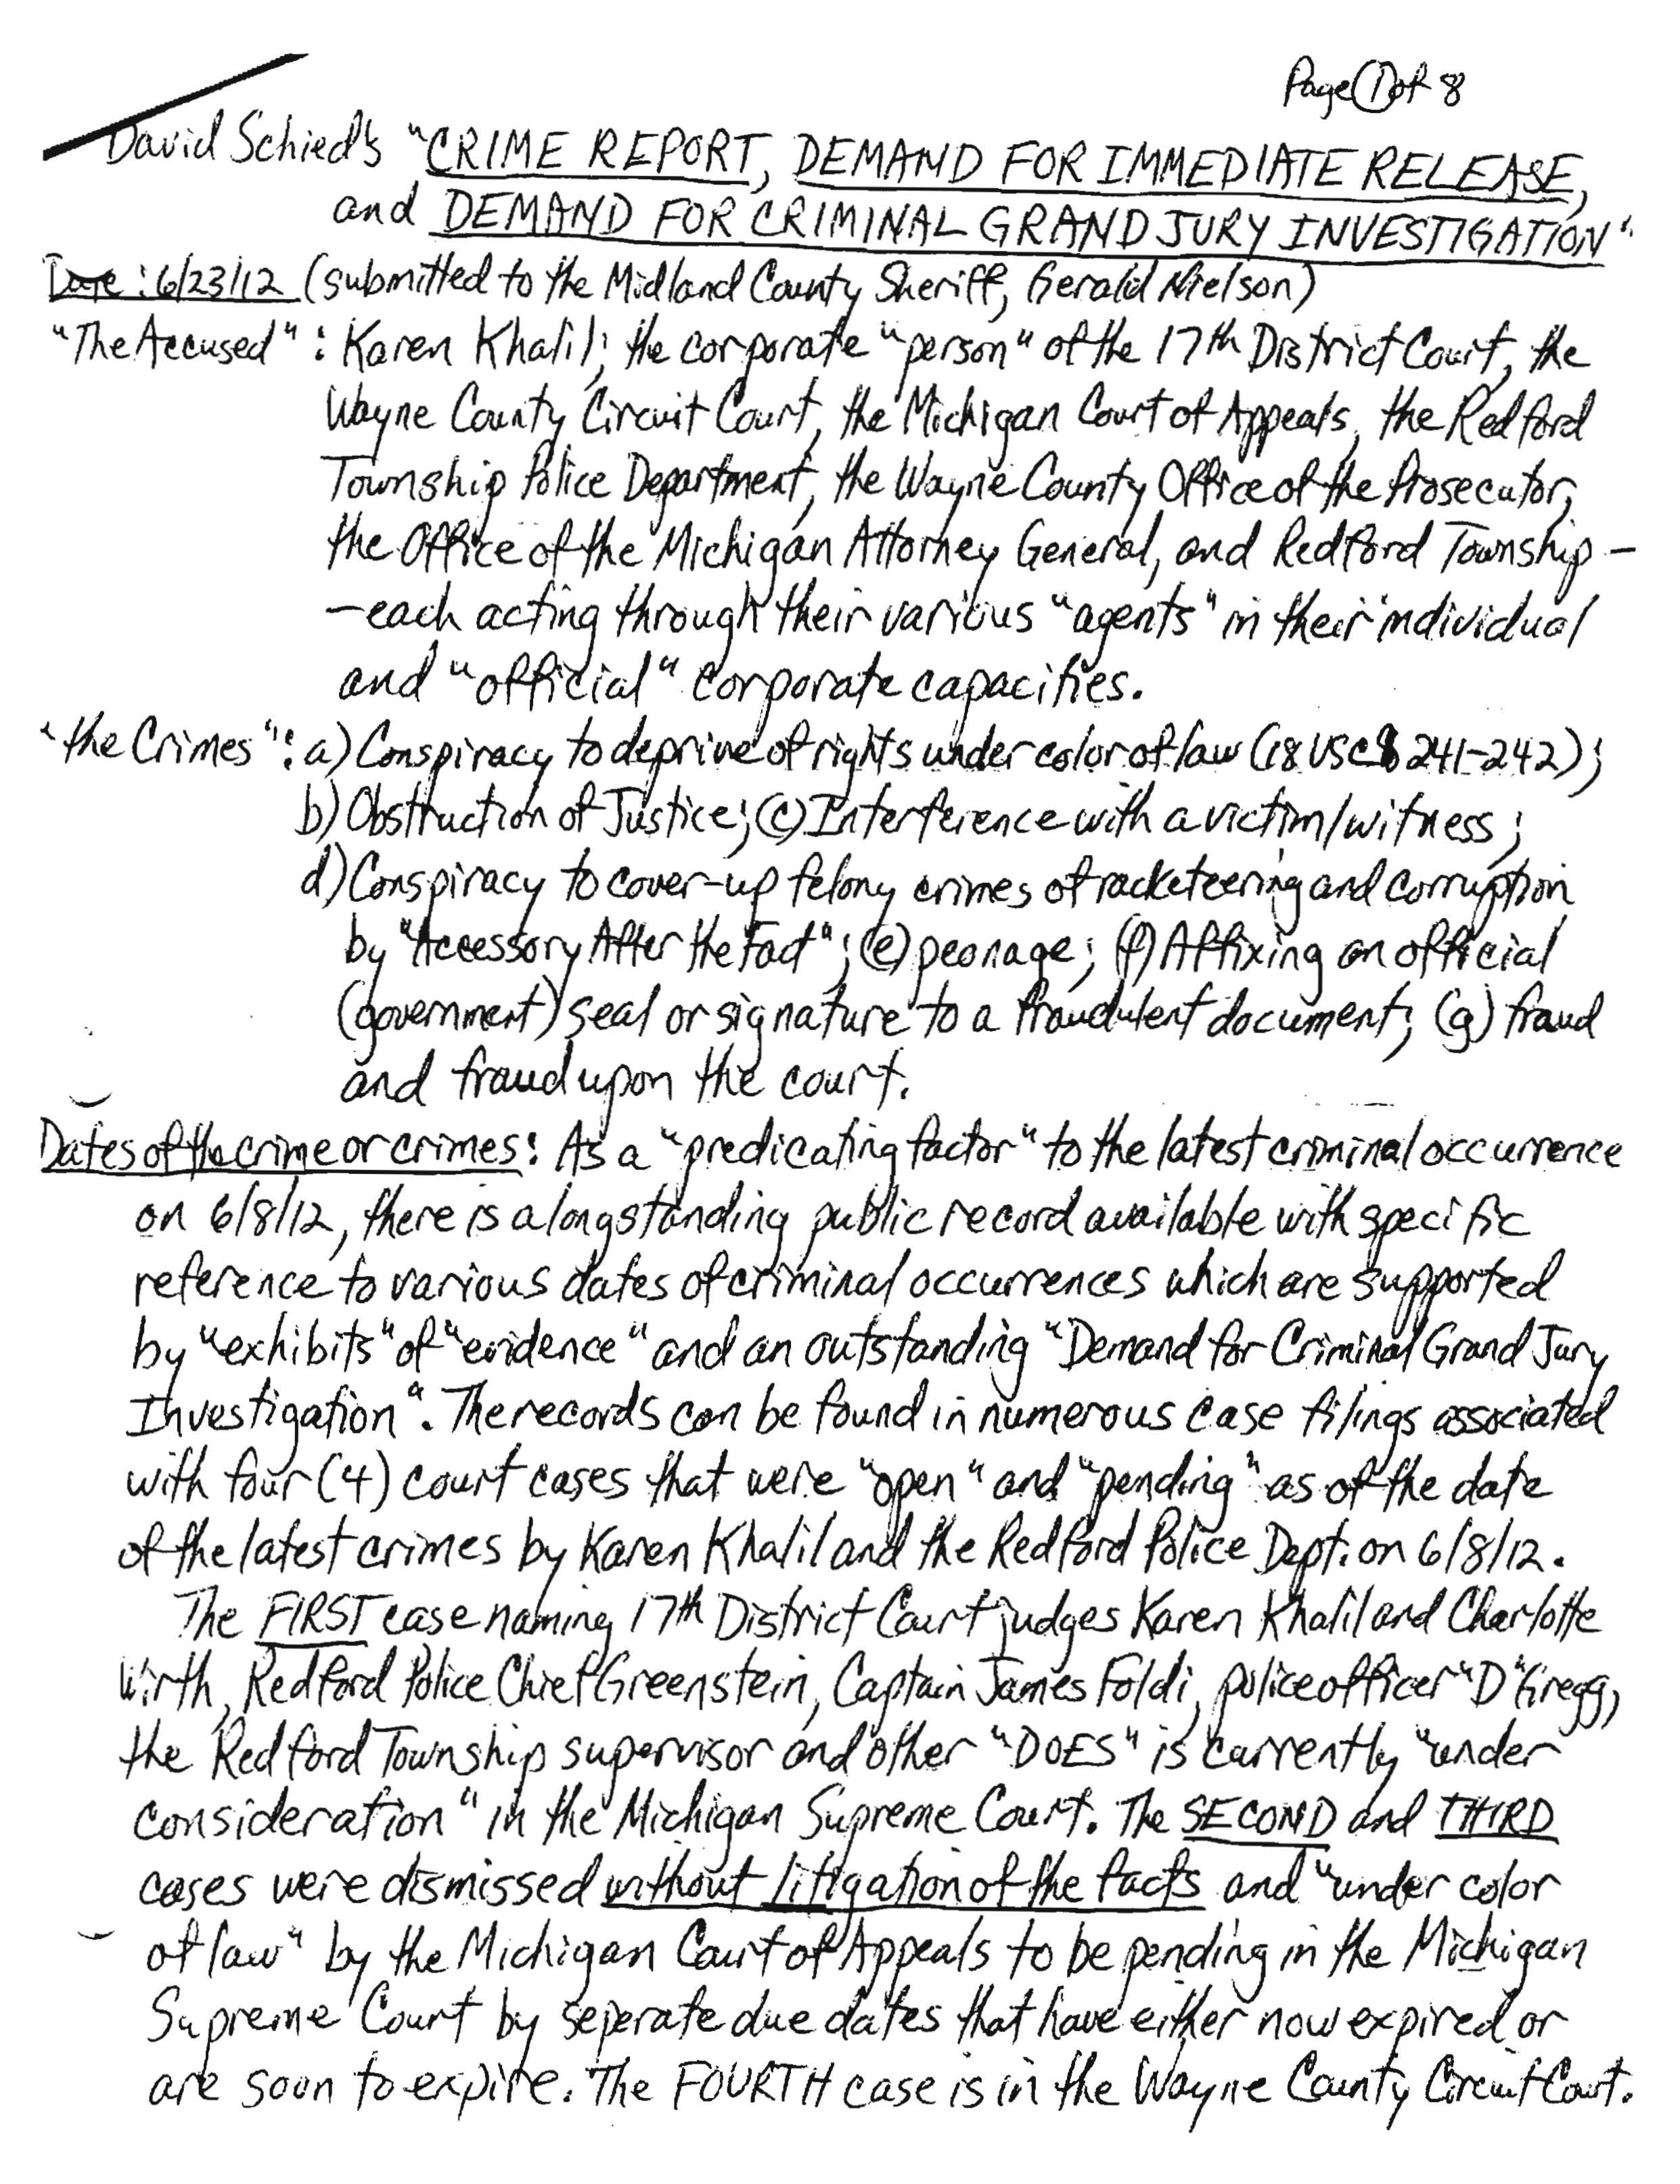 Page 1 of 8
David Schied's "CRIME REPORT, DEMAND FOR IMMEDIATE RELEASE,
and DEMAND FOR CRIMINAL GRAND JURY INVESTIGATION"
Date: 6/23/12 (submitted to the Midland County Sheriff, Gerald Nielson)
"The Accused": Karen Khalil; the corporate "person" of the 17th District Court, the
Wayne County Circuit Court, the Michigan Court of Appeals, the Redford
Township Police Department, the Wayne County Office of the Prosecutor,
the Office of the Michigan Attorney General, and Redford Township -
-each acting through their various "agents" in their individual
and "official" corporate capacities.
"the Crimes": a) Conspiracy to deprive of rights under color of law (18 USC § 241-242);
b) Obstruction of Justice; (c) Interference with a victim/witness;
d) Conspiracy to cover-up felony crimes of racketeering and corruption
by "Accessory After the Fact"; (e) peonage; (f) Affixing an official
(government) seal or signature to a fraudulent document; (g) fraud
and fraud upon the court.
Dates of the crime or crimes: As a "predicating factor" to the latest criminal occurrence
on 6/8/12, there is a longstanding public record available with specific
reference to various dates of criminal occurrences which are supported
by "exhibits" of "evidence" and an outstanding "Demand for Criminal Grand Jury
Investigation". The records can be found in numerous case filings associated
with four (4) court cases that were "open" and "pending" as of the date
of the latest crimes by Karen Khalil and the Redford Police Dept. on 6/8/12.
The FIRST case naming 17th District Court judges Karen Khalil and Charlotte
Wirth, Redford Police Chief Greenstein, Captain James Foldi, police officer "D" Gregg,
the Redford Township supervisor and other "DOES" is currently "under
consideration" in the Michigan Supreme Court. The SECOND and THIRD
cases were dismissed without litigation of the facts and "under color
of law" by the Michigan Court of Appeals to be pending in the Michigan
Supreme Court by seperate due dates that have either now expired or
are soon to expire. The FOURTH case is in the Wayne County Circuit Court.